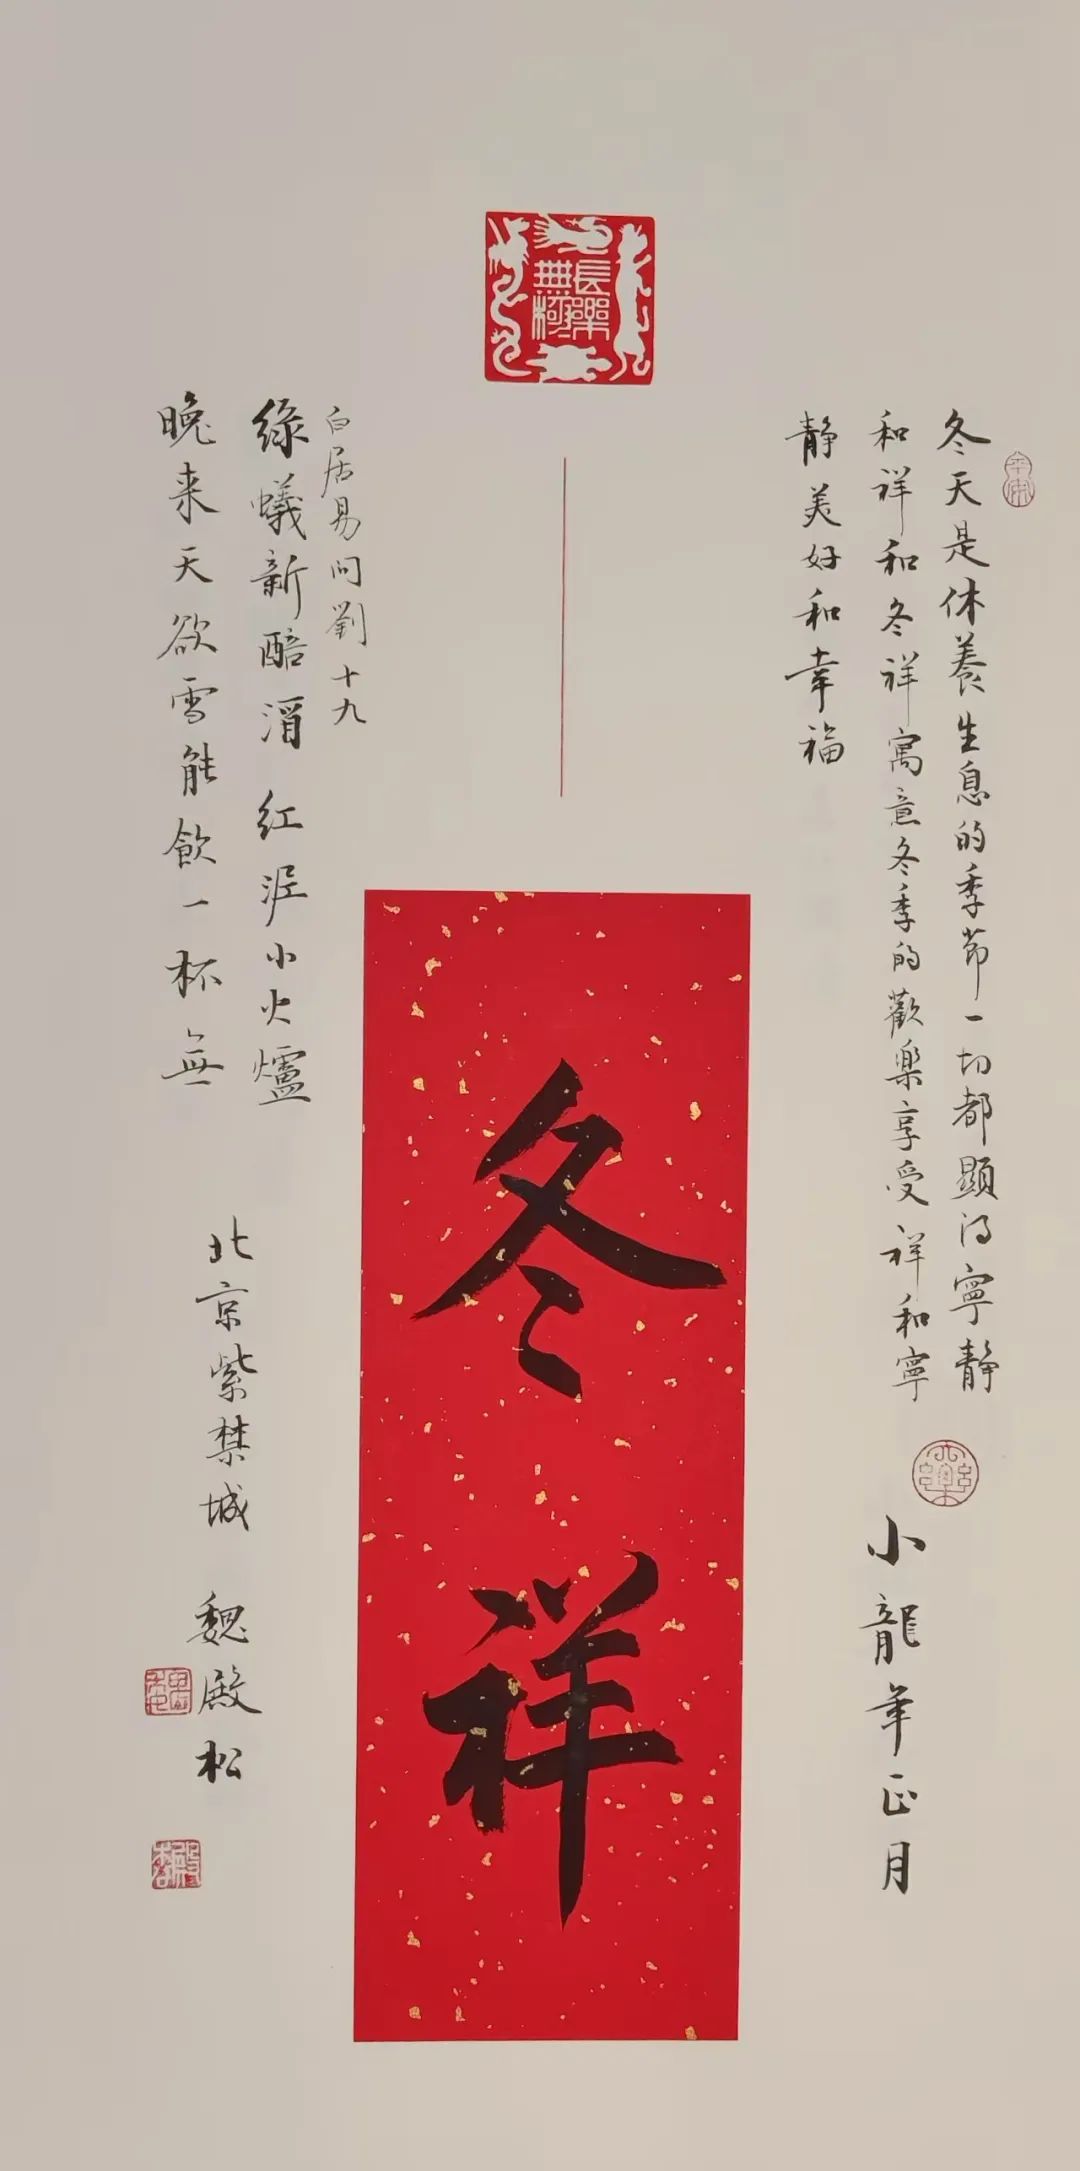 長樂
無極
冬天是休養生息的季节一切都顯得寧静
和祥和冬祥寓意冬季的歡樂享受祥和寧
静美好和幸福
小龍年正月
冬祥
白居易问劉十九
綠蟻新醅酒 红泥小火爐
晚来天欲雪能飲一杯無
北京紫禁城 魏殿松